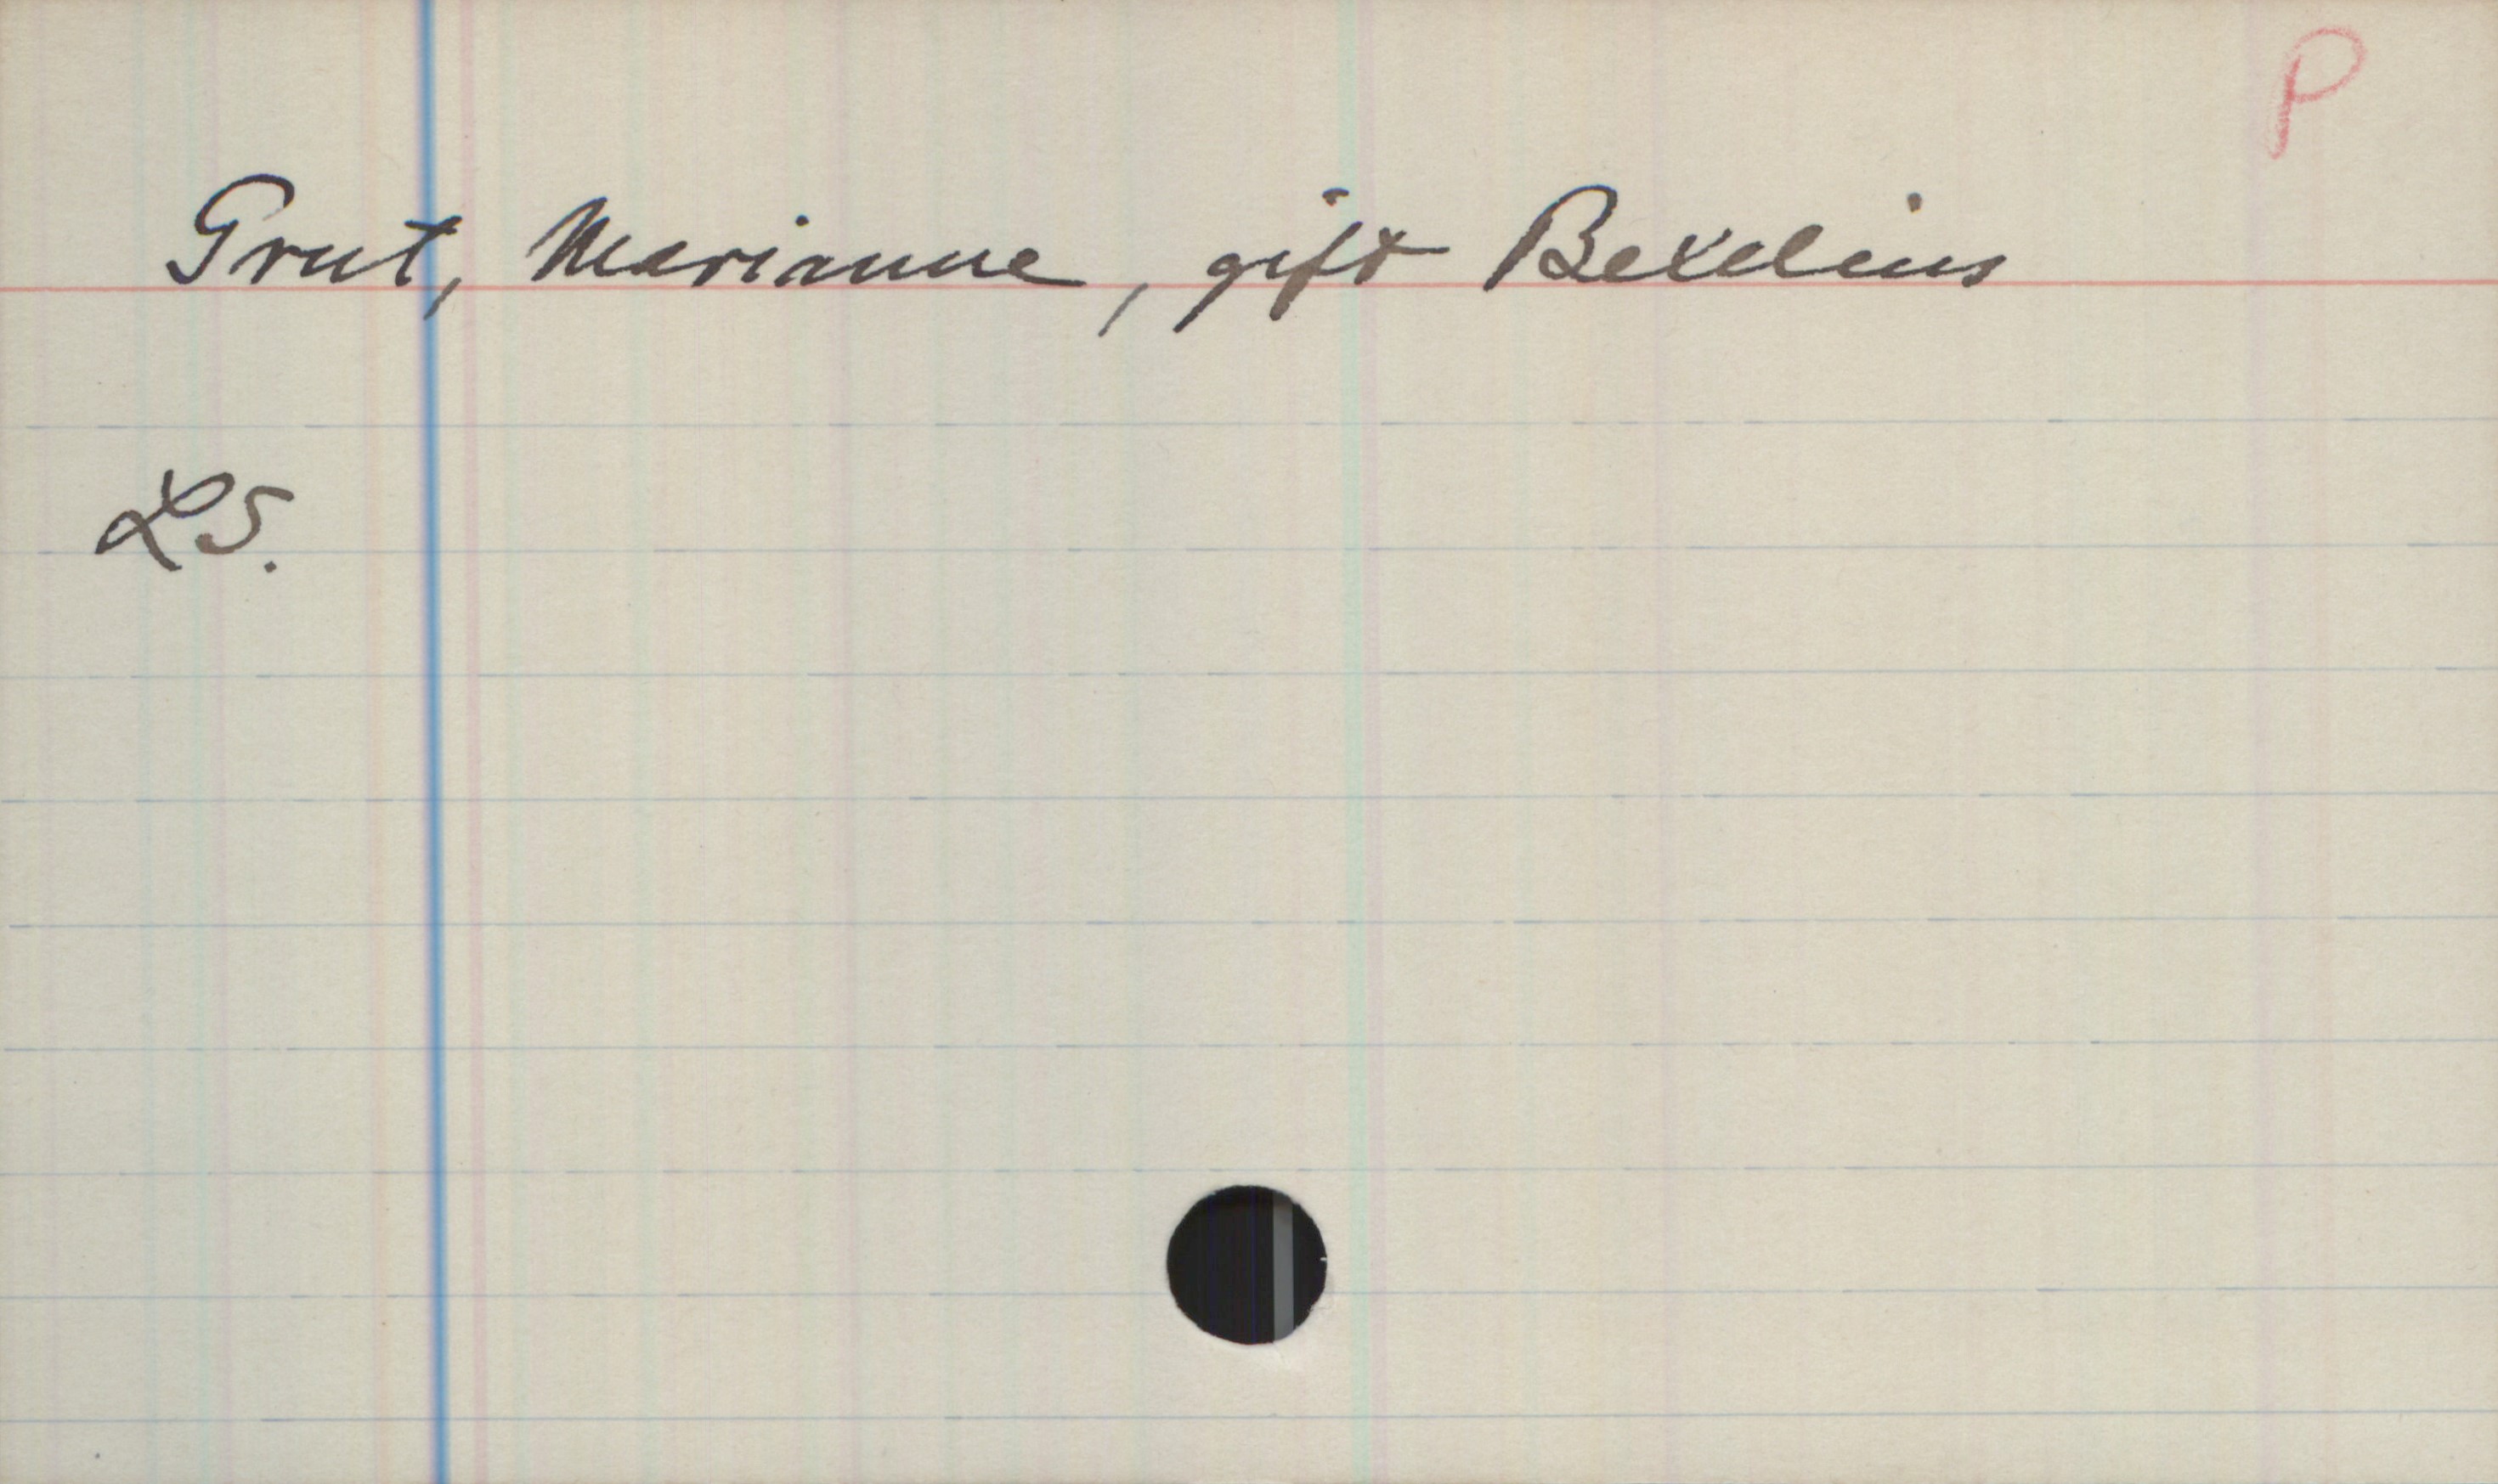 P
Grut, Marianne, gift Bexelius
LS.